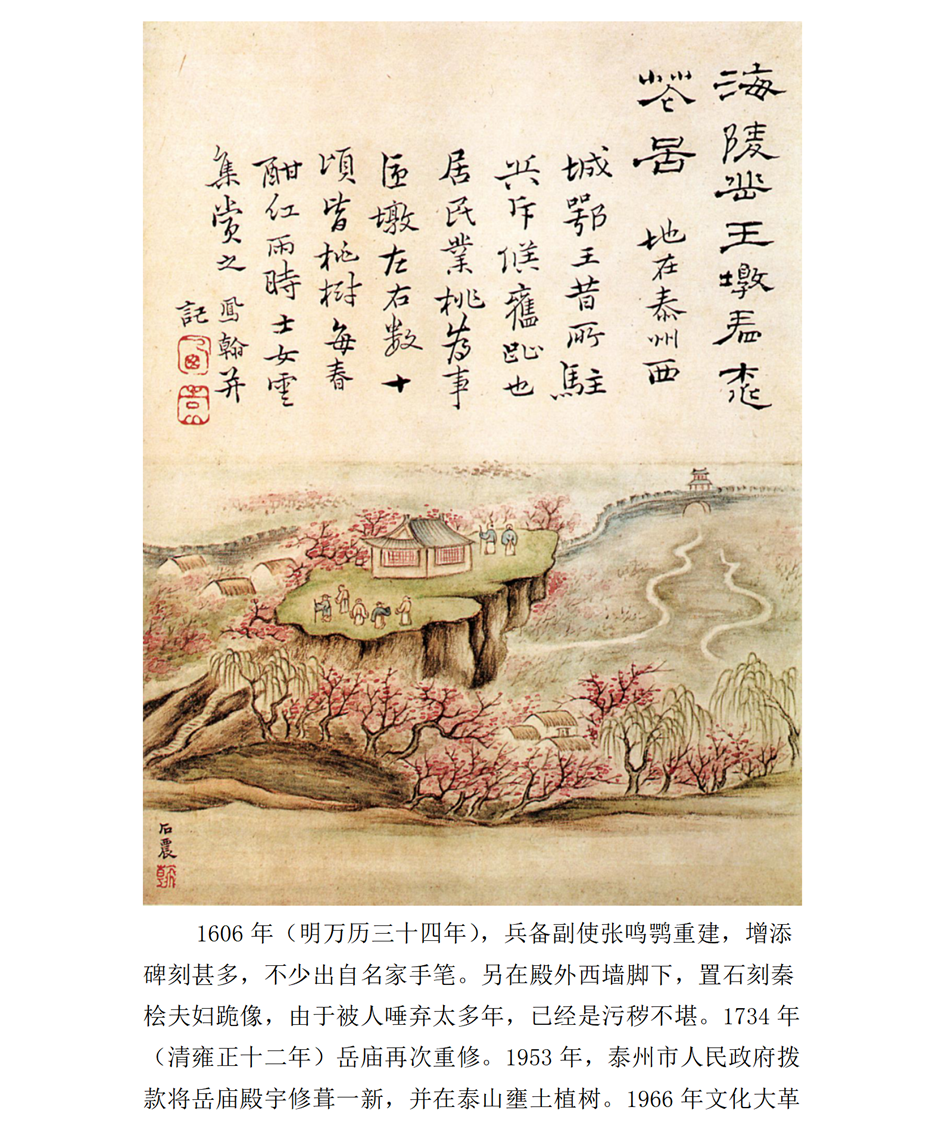 海陵岳王墩看桃
花啚 地在泰州西
城鄂王昔所駐
兵斥候舊趾也
居民業桃為事
匝墩左右数十
頃皆桃樹每春
酣紅雨時士女雲
集赏之 鳳翰并
記
石農
1606 年（明万历三十四年），兵备副使张鸣鹗重建，增添
碑刻甚多，不少出自名家手笔。另在殿外西墙脚下，置石刻秦
桧夫妇跪像，由于被人唾弃太多年，已经是污秽不堪。1734 年
（清雍正十二年）岳庙再次重修。1953 年，泰州市人民政府拨
款将岳庙殿宇修葺一新，并在泰山壅土植树。1966 年文化大革